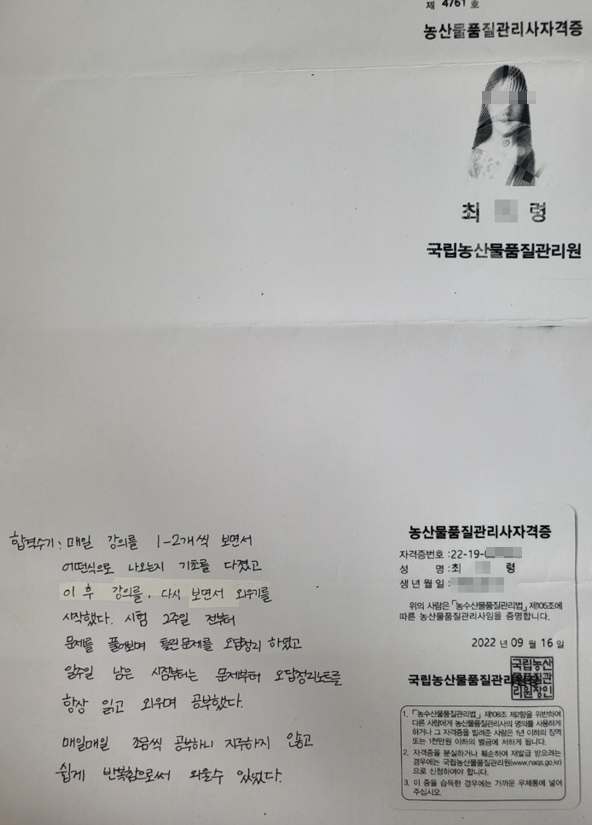 제 4761 호
농산물품질관리사자격증
최 령
국립농산물품질관리원
합격수기: 매일 강의를 1-2개씩 보면서
어떤식으로 나오는지 기초를 다졌고
이 후 강의를, 다시 보면서 외우기를
시작했다. 시험 2주일 전부터
문제를 풀어보며 틀린문제를 오답정리 하였고
일주일 남은 시점부터는 문제부터 오답정리노트를
항상 읽고 외우며 공부했다.
매일매일 조금씩 공부하니 지루하지 않고
쉽게 반복함으로써 외울수 있었다.
농산물품질관리사자격증
자격증번호 :22-19-0
성 명 :최 령
생년월일 :
위의 사람은 「농수산물품질관리법」 제105조에
따른 농산물품질관리사임을 증명합니다.
2022 년 09 월 16 일
국립농산물품질관리원장
국립농산
물품질관
리원장인
1. 「농수산물품질관리법」 제108조 제2항을 위반하여
다른 사람에게 농산물품질관리사의 명의를 사용하게
하거나 그 자격증을 빌려준 사람은 1년 이하의 징역
또는 1천만원 이하의 벌금에 처하게 됩니다.
2. 자격증을 분실하거나 훼손하여 재발급 받으려는
경우에는 국립농산물품질관리원(www.naqs.go.kr)
으로 신청하여야 합니다.
3. 이 증을 습득한 경우에는 가까운 우체통에 넣어
주십시오.